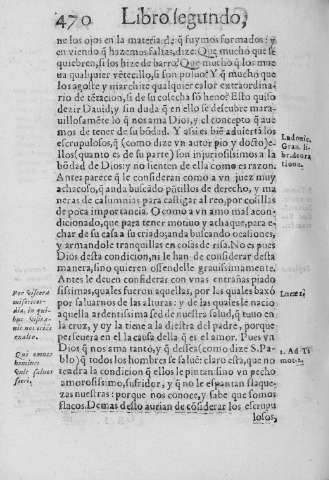 470 Libro segundo,
ne los ojos en la materia de q̃ fuymos formados: y
en viendo q̃ hazemos faltas, dize: Que mucho que se
quiebren, si los hize de barro? Que mucho q̃ los mue
ua qualquier vẽtecillo, si son poluo? Y q̃ mucho que
los agoste y marchite qualquier calor extraordina-
rio de tẽtacion, si de su cosecha sõ heno? Esto quiso
dezir Dauid, y sin duda q̃ en ello se descubre mara-
uillosamẽte lo q̃ nos ama Dios, y el concepto q̃ aue
mos de tener de su bõdad. Y assi es biẽ aduiertã los
escrupulosos, q̃ (como dize vn autor pio y docto) e-
llos (quanto es de su parte) son injuriosissimos a la
bõdad de Dios: y no sienten de ella como es razon.
Antes parece q̃ le consideran como a vn juez muy
achacoso, q̃ anda buscado pũtillos de derecho, y ma
neras de calumnias para castigar al reo, por cosillas
de poca importancia. O como a vn amo mal acon-
dicionado, que para tener motiuo y achaque, para e-
char de su casa a su criado, anda buscando ocasiones,
y armandole tranquillas en cosas de risa. No es pues
Dios desta condicion, ni le han de considerar desta
manera, sino quieren offendelle grauissimamente.
Antes le deuen considerar con vnas entrañas piado
sissimas, quales fueron aquellas, por las quales baxò
por saluarnos de las alturas: y de las quales le nacio
aquella ardentissima sed de nuestra salud, q̃ tuuo en
la cruz, y oy la tiene a la diestra del padre, porque
perseuera en el la causa della q̃ es el amor. Pues vn
Dios q̃ nos ama tanto, y q̃ dessea (como dize S. Pa-
blo) q̃ todos los hombres se saluẽ: claro està, que no
tendra la condicion q̃ ellos le pintan sino vn pecho
amorosissimo, sufridor, y q̃ no le espantan flaque-
zas nuestras: porque nos conoce, y sabe que somos
flacos. Demas desto aurian de cõsiderar los escrupu
losos,
Ludouic.
Gran. li-
Lucæ 1.
1. Ad Ti
mot. 2.
Per viscera
misericor-
diæ, in qui-
bus
nos oriẽs
ex alto.
Qui omnes
homines
vult saluos
fieri.